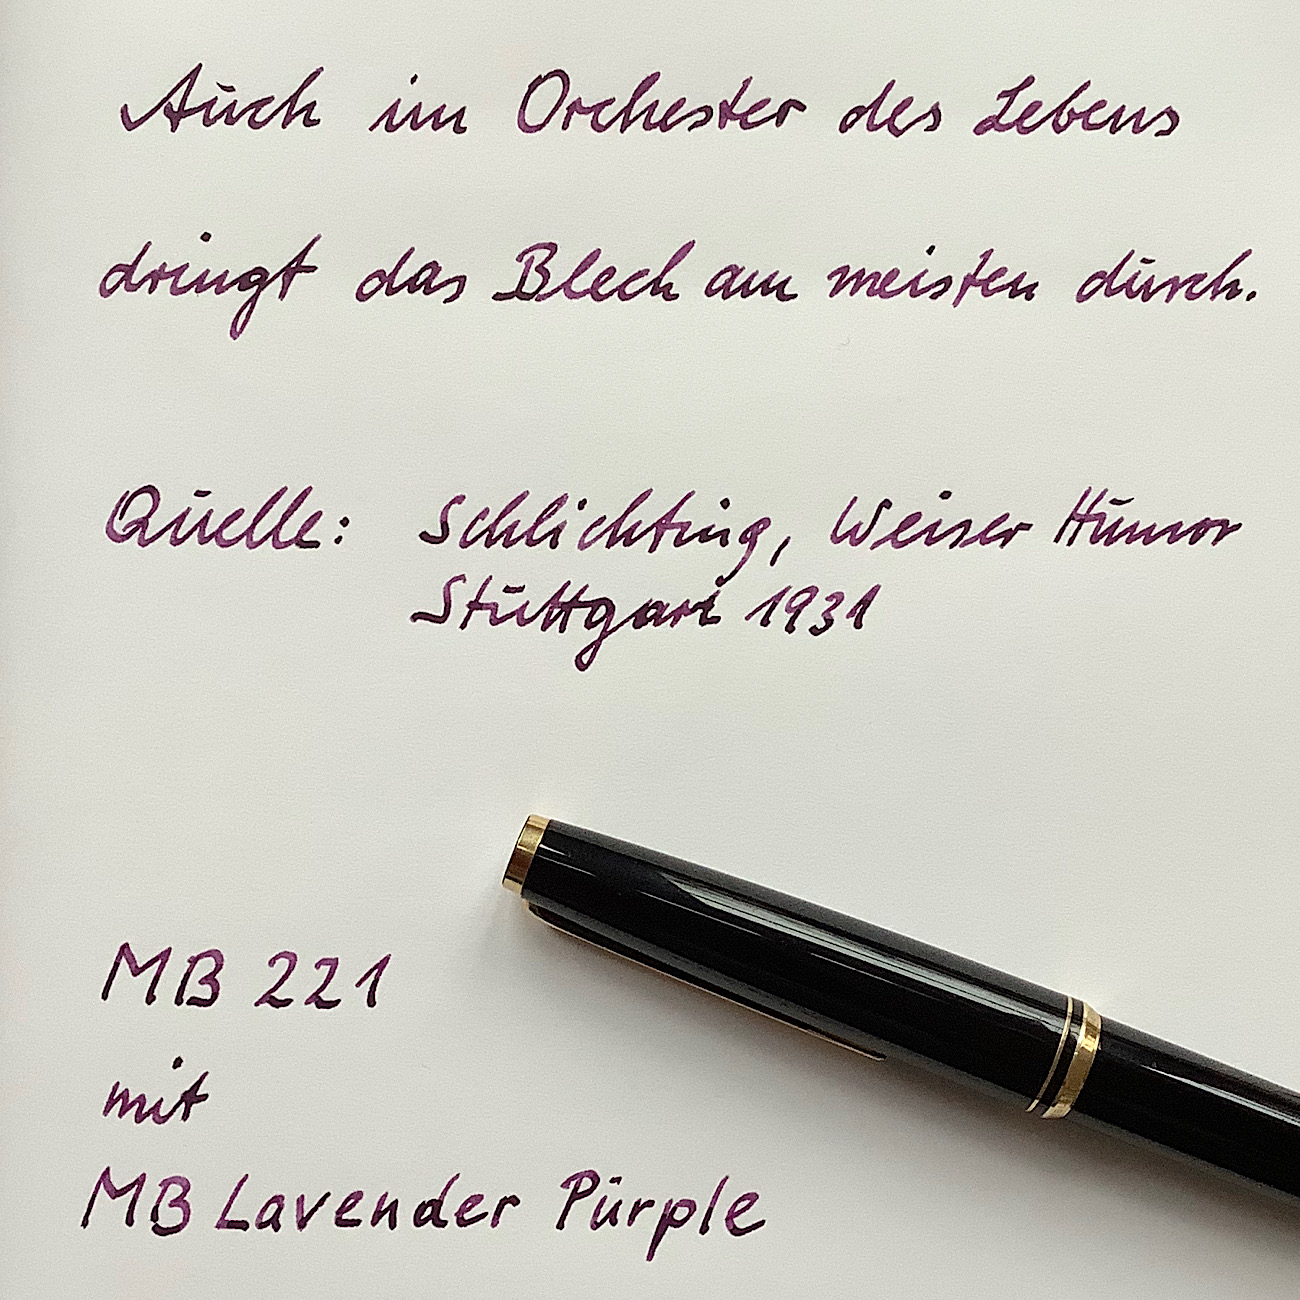 Auch im Orchester des Lebens
dringt das Blech am meisten durch.
Quelle: Schlichting, Weiser Humor
Stuttgart 1931
MB 221
mit
MB Lavender Purple